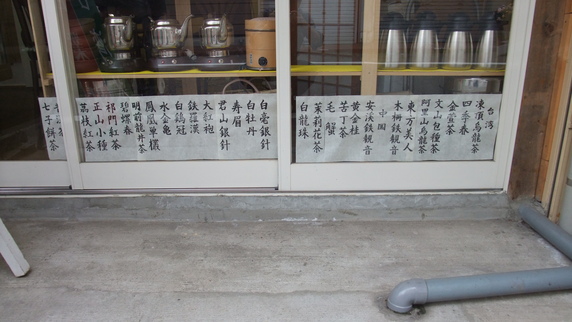 台湾
凍頂烏龍茶
四季春
金萱茶
文山包種茶
阿里山烏龍茶
東方美人
木柵鉄観音
中国
安渓鉄観音
黄金桂
苦丁茶
毛蟹
茉莉花茶
白龍珠
白毫銀針
白牡丹
寿眉
君山銀針
大紅袍
鉄羅漢
白鶏冠
水金亀
鳳凰単欉
明前龍井茶
碧螺春
祁門紅茶
正山小種
茘枝紅茶
七子餅茶